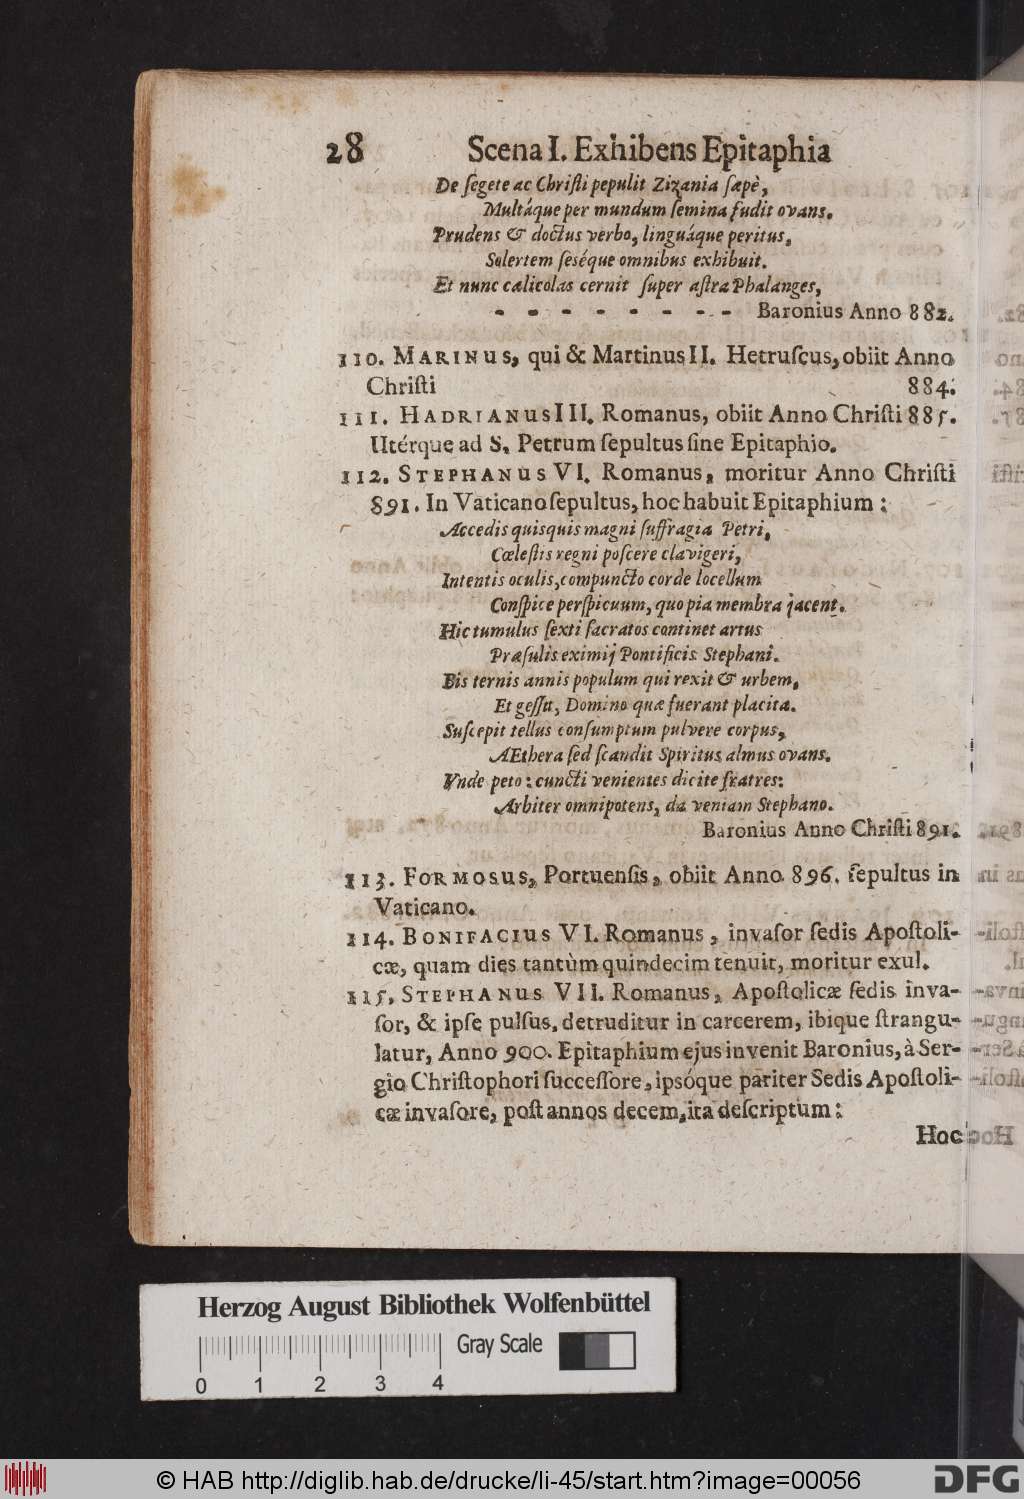 28 Scena I. Exhibens Epitaphia
De ſegete ac Chriſti pepulit Zizania ſæpè,
Multáque per mundum ſemina fudit ovans.
Prudens & doctus verbo, linguáque peritus,
Solertem ſeséque omnibus exhibuit.
Et nunc cælicolas cernit ſuper aſtra Phalanges,
- - - - - - - - Baronius Anno 882.
110. MARINUS, qui & Martinus II. Hetruſcus, obiit Anno
Chriſti 884.
111. HADRIANUS III. Romanus, obiit Anno Chriſti 885.
Utérque ad S. Petrum ſepultus ſine Epitaphio.
112. STEPHANUS VI. Romanus, moritur Anno Chriſti
891. In Vaticano ſepultus, hoc habuit Epitaphium:
Accedis quisquis magni ſuffragia Petri,
Cœleſtis regni poſcere clavigeri,
Intentis oculis, compuncto corde locellum
Conſpice perſpicuum, quo pia membra jacent.
Hic tumulus ſexti ſacratos continet artus
Præſulis eximij Pontificis Stephani.
Bis ternis annis populum qui rexit & urbem,
Et geſſit, Domino quæ fuerant placita.
Suſcepit tellus conſumptum pulvere corpus,
AEthera ſed ſcandit Spiritus almus ovans.
Vnde peto: cuncti venientes dicite fratres:
Arbiter omnipotens, da veniam Stephano.
Baronius Anno Chriſti 891.
113. FORMOSUS, Portuenſis, obiit Anno 896. ſepultus in
Vaticano.
114. BONIFACIUS VI. Romanus, invaſor ſedis Apoſtoli-
cæ, quam dies tantùm quindecim tenuit, moritur exul.
115. STEPHANUS VII. Romanus, Apoſtolicæ ſedis inva-
ſor, & ipſe pulſus, detruditur in carcerem, ibique ſtrangu-
latur, Anno 900. Epitaphium ejus invenit Baronius, à Ser-
gio Chriſtophori ſucceſſore, ipsóque pariter Sedis Apoſtoli-
cæ invaſore, poſt annos decem, ita deſcriptum:
Hoc
Herzog August Bibliothek Wolfenbüttel
Gray Scale
0 1 2 3 4
© HAB http://diglib.hab.de/drucke/li-45/start.htm?image=00056
DFG